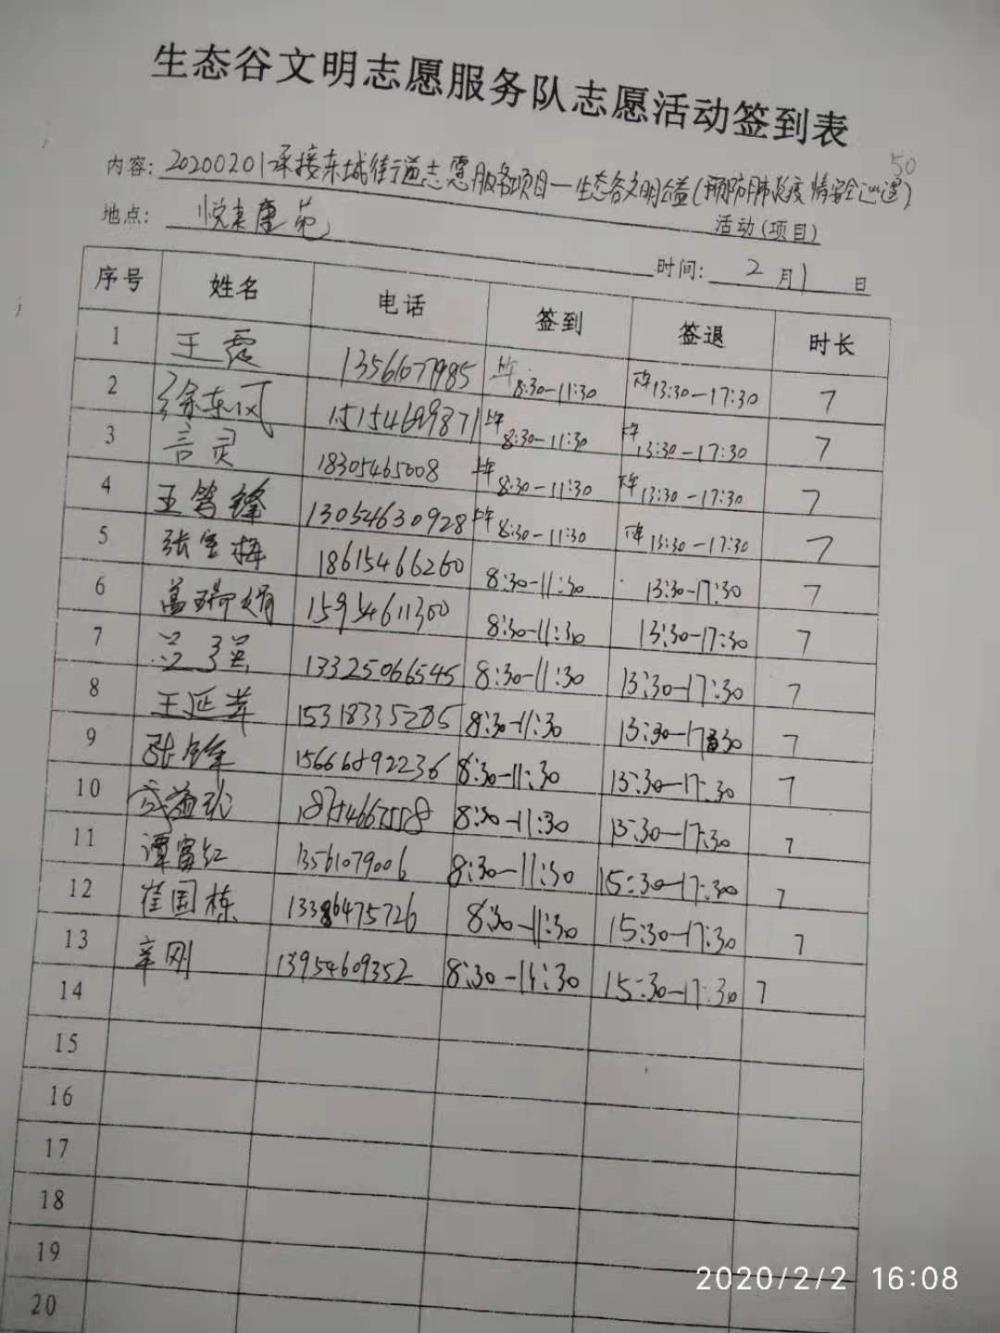 生态谷文明志愿服务队志愿活动签到表
50
内容: 20200201承接东城街道志愿服务项目—生态谷文明公益(预防肺炎疫情安全巡逻)
活动(项目)
地点: 悦来康苑
时间: 2月1日
序号 姓名 电话 签到 签退 时长
1 王霞 13561077985 上午8:30-11:30 下午13:30-17:30 7
2 徐东风 15154699871 上午8:30-11:30 下午13:30-17:30 7
3 言灵 18305465008 上午8:30-11:30 下午13:30-17:30 7
4 王笃锋 13054630928 上午8:30-11:30 下午13:30-17:30 7
5 张宝梅 18615466260 8:30-11:30 13:30-17:30 7
6 盖瑞娟 15954611300 8:30-11:30 13:30-17:30 7
7 13325066545 8:30-11:30 13:30-17:30 7
8 王延苹 15318335285 8:30-11:30 13:30-17:30 7
9 15666892236 8:30-11:30 13:30-17:30 7
10 8:30-11:30 13:30-17:30 7
11 谭富红 13561079006 8:30-11:30 15:30-17:30 7
12 崔国栋 13386475726 8:30-11:30 15:30-17:30 7
13 辛刚 13954609352 8:30-11:30 15:30-17:30 7
14
15
16
17
18
19
20
2020/2/2 16:08